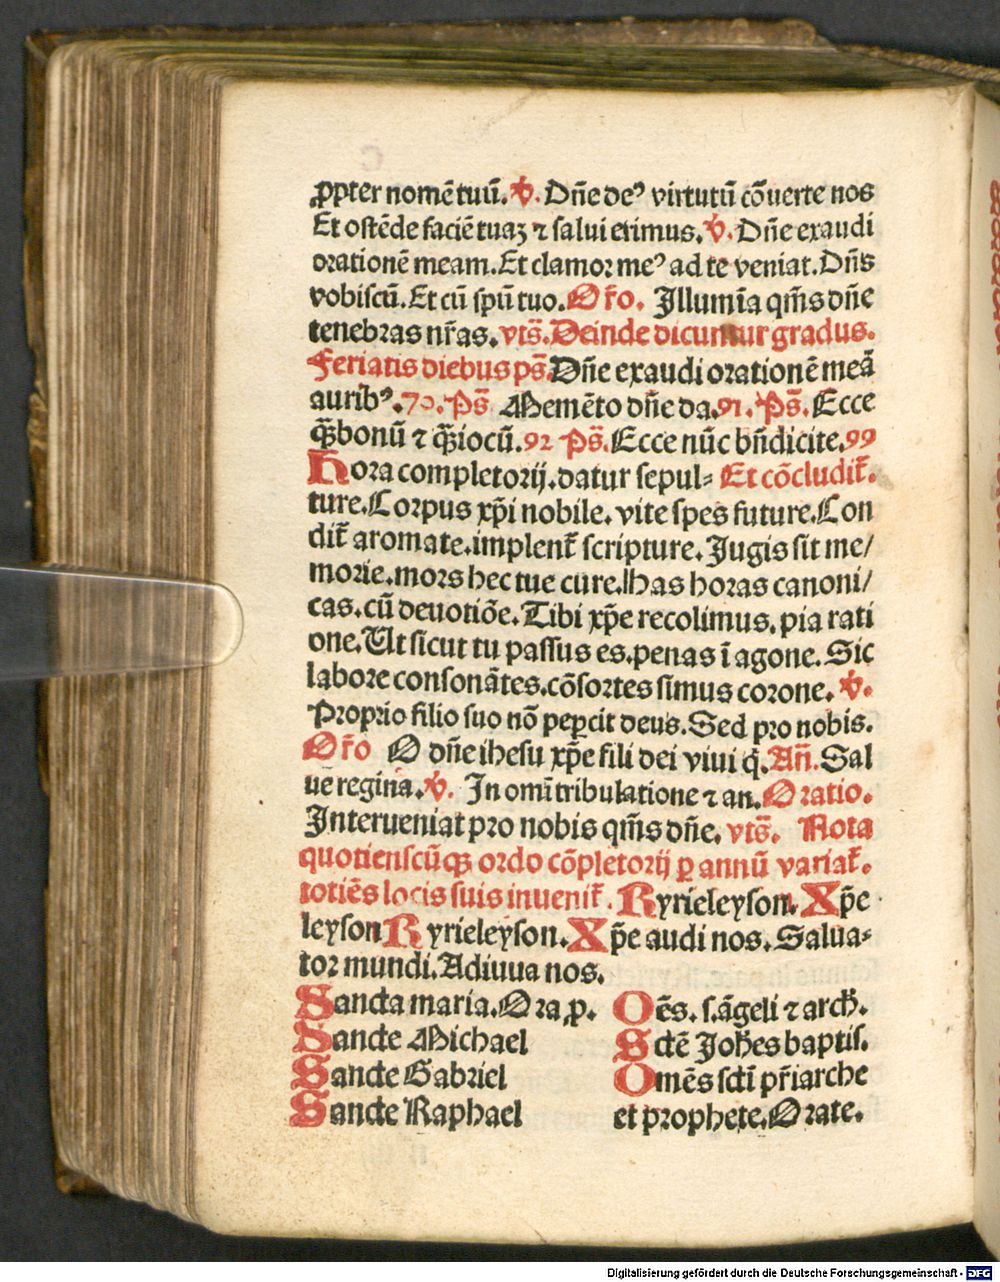 ꝓpter nomē tuū. ℣. Dn̄e deꝰ virtutū cōuerte nos
Et ostēde faciē tuaꝫ ⁊ salui erimus. ℣. Dn̄e exaudi
orationē meam. Et clamor meꝰ ad te veniat. Dn̄s
vobiscū. Et cū spū tuo. Or̄o. Illumīa qm̄s dn̄e
tenebras nr̄as. vts̄. Deinde dicuntur gradus.
Feriatis diebus ps̄. Dn̄e exaudi orationē meā
auribꝰ. 70. Ps̄ Memēto dn̄e da. 91. Ps̄. Ecce
q̄ꝫ bonū ⁊ q̄ꝫ iocū. 92 Ps̄. Ecce nūc bn̄dicite. 99
Hora completorij. datur sepul⸗ Et cōcludit̄.
ture. Corpus xp̄i nobile. vite spes future. Con
dit̄ aromate. implent̄ scripture. Jugis sit me/
morie. mors hec tue cure. Has horas canoni/
cas. cū deuotiōe. Tibi xp̄e recolimus. pia rati
one. Ut sicut tu passus es. penas ī agone. Sic
labore consonātes. cōsortes simus corone. ℣.
Proprio filio suo nō pepercit deus. Sed pro nobis.
Or̄o O dn̄e ihesu xp̄e fili dei viui q̄. An̄. Sal
ue regina. ℣. In omī tribulatione ⁊ an. Oratio.
Interueniat pro nobis qm̄s dn̄e. vts̄. Nota
quotienscūqꝫ ordo cōpletorij ꝑ annū variat̄.
totiēs locis suis inuenit̄. Kyrieleyson. Xp̄e
leyson Kyrieleyson. Xp̄e audi nos. Salua⸗
tor mundi. Adiuua nos.
Sancta maria. Ora ꝓ.
Sancte Michael
Sancte Gabriel
Sancte Raphael
Oēs. s. āgeli ⁊ arch̄.
Sctē Joh̄es baptis.
Omēs sctī pr̄iarche
et prophete. Orate.
Digitalisierung gefördert durch die Deutsche Forschungsgemeinschaft - DFG